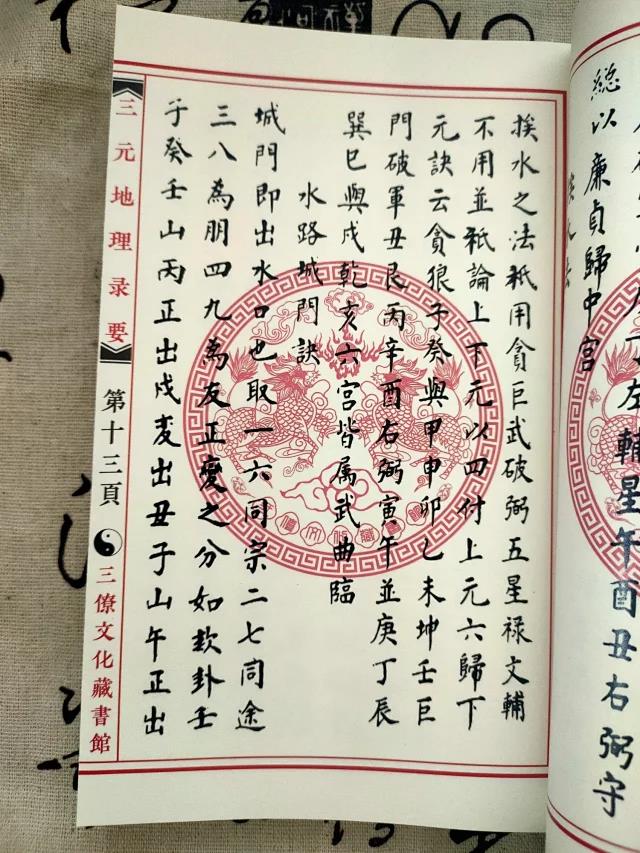 左輔星午酉丑右弼守
總以廉貞歸中宮
挨水之法祗用貪巨武破弼五星祿文輔
不用並祗論上下元以四付上元六歸下
元訣云貪狼子癸與甲申卯乙未坤壬巨
門破軍丑艮丙辛酉右弼寅午並庚丁辰
巽巳與戌乾亥六宮皆属武曲臨
水路城門訣
城門即出水口也取一六同宗二七同途
三八為朋四九為友正變之分如欵卦壬
子癸壬山丙正出戌变出丑子山午正出
三元地理录要
第十三頁
三僚文化藏書館